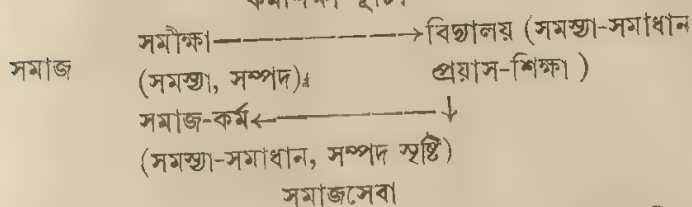 সমীক্ষা————→বিদ্যালয় (সমস্যা-সমাধান
সমাজ (সমস্যা, সম্পদ) প্রয়াস-শিক্ষা )
সমাজ-কর্ম←————↓
(সমস্যা-সমাধান, সম্পদ সৃষ্টি)
সমাজসেবা